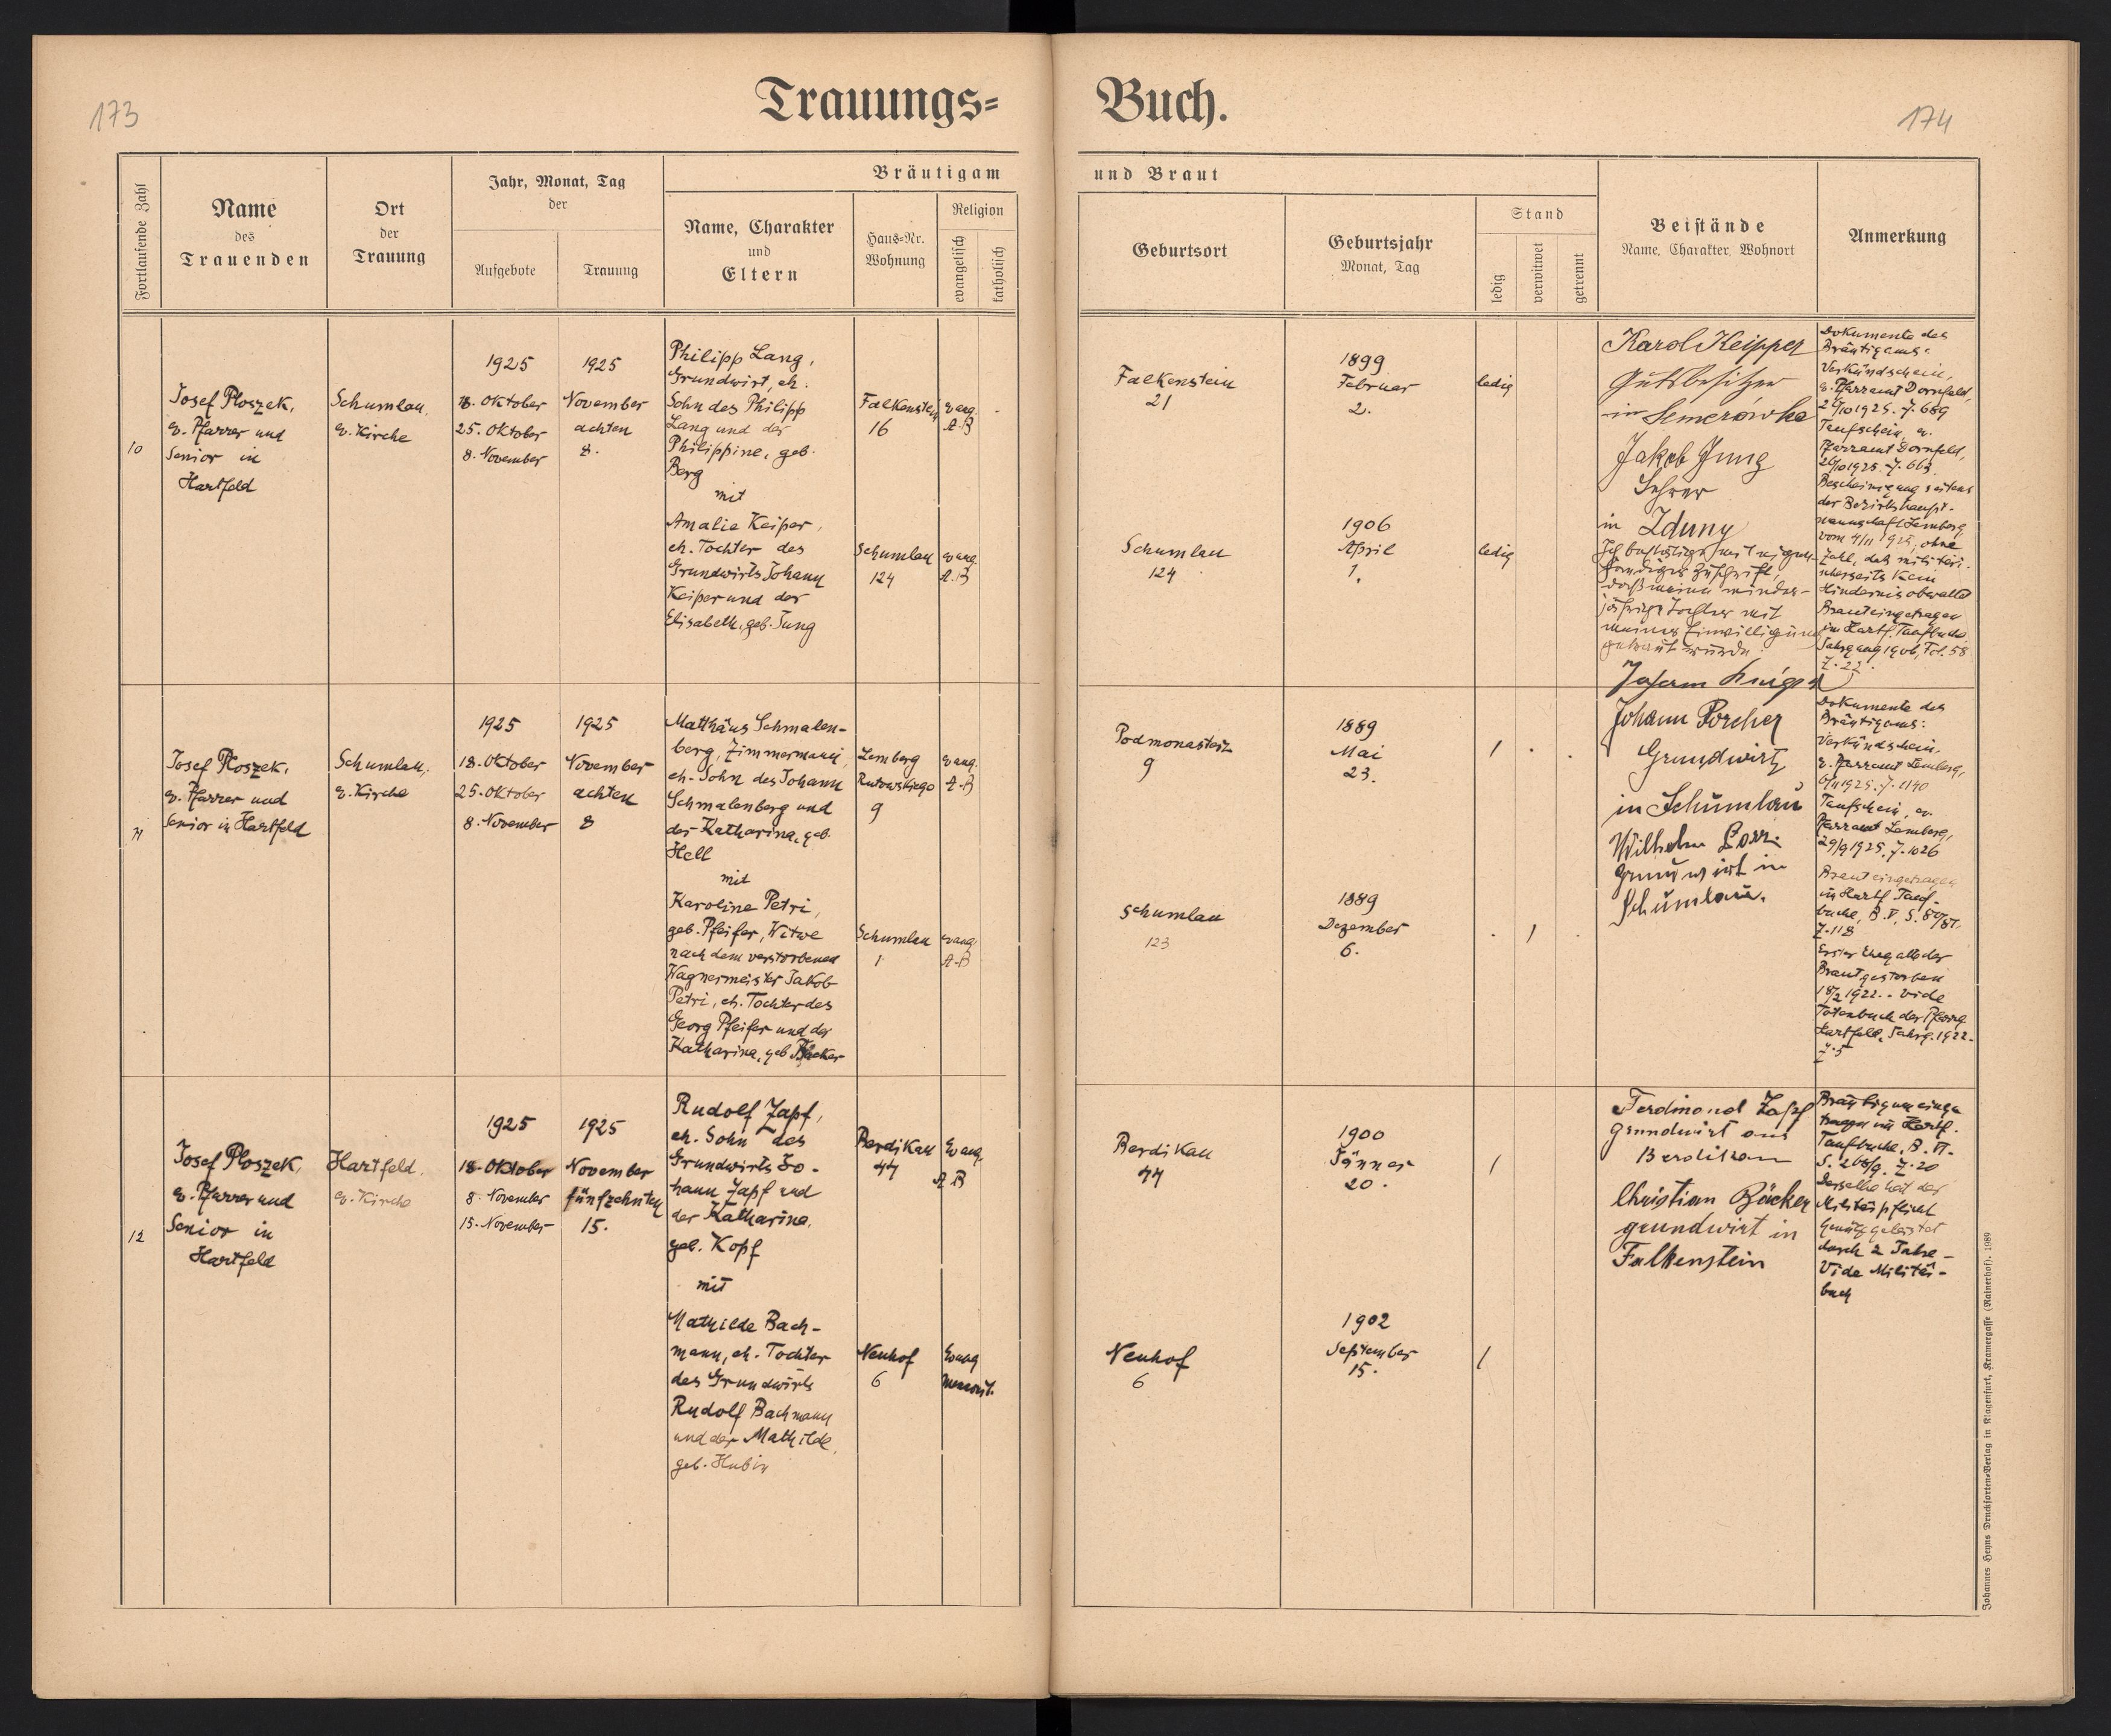 173
Trauungs= Buch.
174
Fortlaufende Zahl
Name
des
Trauenden
Ort
der
Trauung
Jahr, Monat, Tag
der
Aufgebote
Trauung
Bräutigam
Name, Charakter
und
Eltern
Haus=Nr.
Wohnung
Religion
evangelisch
katholisch
und Braut
Geburtsort
Geburtsjahr
Monat, Tag
Stand
ledig
verwitwet
getrennt
Beistände
Name, Charakter, Wohnort
Anmerkung
10
Josef Ploszek,
ev. Pfarrer und
Senior in
Hartfeld
Schumlau,
ev. Kirche
1925
18. Oktober
25. Oktober
8. November
1925
November
achten
8.
Philipp Lang,
Grundwirt, eh.
Sohn des Philipp
Lang und der
Philippine, geb.
Berg
mit
Amalie Keiper,
eh. Tochter des
Grundwirts Johann
Keiper und der
Elisabeth, geb. Jung
Falkenstein
16
evang.
A.B
Schumlau
124
evang.
A.B
Falkenstein
21
1899
Februar
2.
ledig
Schumlau
124
1906
April
1.
ledig
Karol Keipper
Gutsbesitzer
in Semerówka
Jakob Jung
Lehrer
in Zduny
Ich bestätige mit eigen-
händiger Zuschrift,
daß meine minder-
jährige Tochter mit
meiner Einwilligung
getraut wurde.
Dokumente des
Bräutigams:
Verkündschein,
ev. Pfarramt Dornfeld,
26/10 1925. Z. 669
Taufschein, ev.
Pfarramt Dornfeld,
26/10 1925. Z. 663
Bescheinigung seitens
der Bezirkshaupt-
mannschaft Lemberg
vom 4/11 1925, ohne
Zahl, daß militäri-
scherseits kein
Hindernis obwaltet
Braut eingetragen
im Hartf. Taufbuch
Jahrgang 1906, Fol. 58
Z. 22.
11
Josef Ploszek,
ev. Pfarrer und
Senior in Hartfeld
Schumlau,
ev. Kirche
1925
18. Oktober
25. Oktober
8. November
1925
November
achten
8
Matthäus Schmalen-
berg, Zimmermann,
eh. Sohn des Johann
Schmalenberg und
der Katharina, geb.
Hell
mit
Karoline Petri,
geb. Pfeifer, Witwe
nach dem verstorbenen
Wagnermeister Jakob
Petri, eh. Tochter des
Georg Pfeifer und der
Katharina, geb. Bäcker
Lemberg
Rutowskiego
9
evang.
A.B
Schumlau
1
evang.
A.B
Podmonasterz
9
1889
Mai
23.
/
Schumlau
123
1889
Dezember
6.
/
Johann Porcher
Grundwirt
in Schumlau
Wilhelm
Grundwirt in
Schumlau.
Dokumente des
Bräutigams:
Verkündschein,
ev. Pfarramt Lemberg,
6/11 1925. Z. 1190
Taufschein, ev.
Pfarramt Lemberg,
29/9 1925. Z. 1026
Braut eingetragen
im Hartf. Tauf-
buche, B. V, S. 80/81,
Z. 118
Erster Ehegatte der
Braut gestorben
18/2 1922. - vide
Totenbuch der Pfarrg.
Hartfeld, Jahrg. 1922.
Z. 5
12
Josef Ploszek,
ev. Pfarrer und
Senior in
Hartfeld
Hartfeld,
ev. Kirche
1925
18. Oktober
8. November
15. November
1925
November
fünfzehnten
15.
Rudolf Zapf,
eh. Sohn des
Grundwirts Jo-
hann Zapf und
der Katharina,
geb. Kopf
mit
Mathilde Bach-
mann, eh. Tochter
des Grundwirts
Rudolf Bachmann
und der Mathilde,
geb. Hubin
Berdikau
44
Evang.
A B
Neuhof
6
Evang
mennonit.
Berdikau
44
1900
Jänner
20.
/
Neuhof
6
1902
September
15.
/
Ferdinand Zapf
Grundwirt aus
Berdikau
Christian Bäcker
grundwirt in
Falkenstein
Bräutigam einge-
tragen im Hartf.
Taufbuche, B. VI.
S. 268/9. Z. 20
Derselbe hat der
Militärpflicht
Genüge geleistet
durch 2 Jahre -
Vide Militär-
buch
Johannes Heyns Drucksorten=Verlag in Klagenfurt, Kramergasse (Rainerhof). 1089